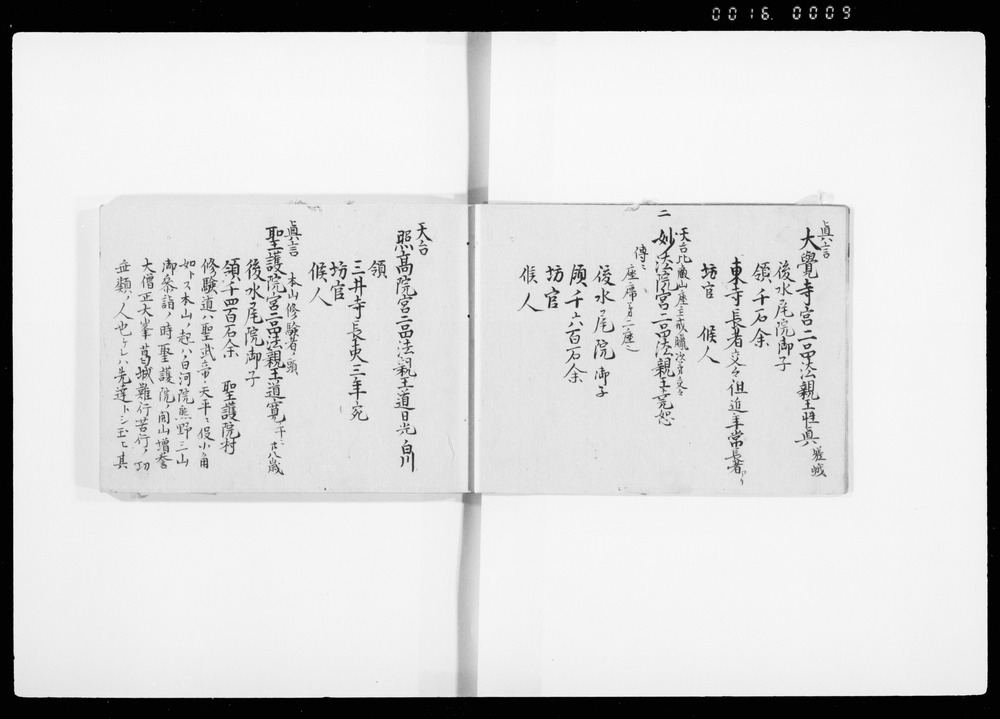 0016. 0009
真言
大覺寺宮二品法親王性真 嵯峨
後水尾院御子
領千石余
東寺長者交々但近年常長者
坊官 候人
天台比叡山座主戒臈次第交々
二 妙法院宮二品法親王堯恕
傳ニ
座席第二座之
後水ノ尾院御子
領千六百石余
坊官
候人
天台
照高院宮二品法親王道日光 白川
領
三井寺長吏三年宛
坊官
候人
真言 本山修験者ノ頭
聖護院宮二品法親王道寛 干ニ 廿八歳
後水ノ尾院御子
領千四百石余 聖護院村
修験道ハ聖武帝ノ天平ニ役小角
如トス本山ノ起ハ白河院熊野三山
御参詣ノ時聖護院ノ開山増誉
大僧正大峯葛城難行苦行ノ功
無類ノ人也ケレハ先達トシ玉ヒ其